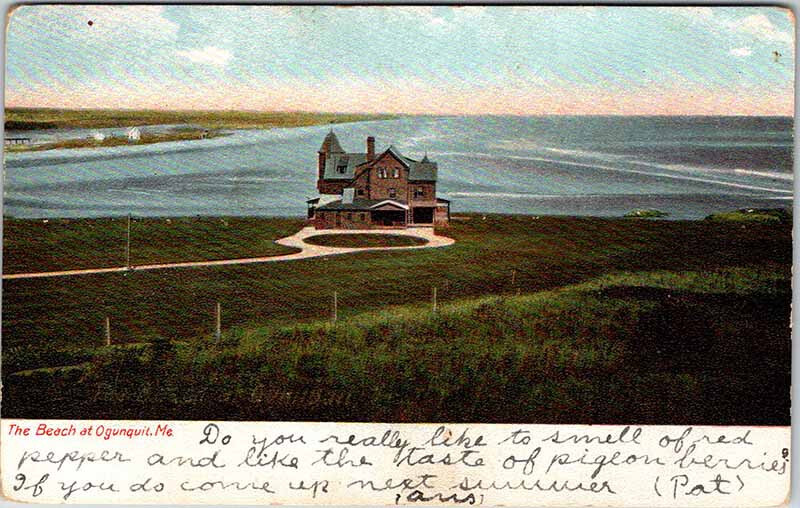 The Beach at Ogunquit, Me.
Do you really like to smell of red
pepper and like the taste of pigeon berries?
If you do come up next summer (Pat)
(ans)